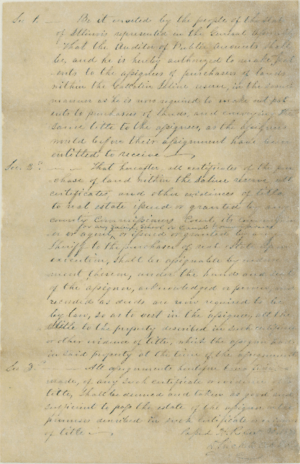 Sec 1. Be it enacted by the people of the State
of Illinois represented in the General Assembly
That the Auditor of Public Accounts shall
be, and he is hereby authorized to make pat-
ents to the assignees of purchasers of lands
within the Gallatin Saline reserve, in the same
manner as he is now required to make out pat-
ents to purchasers of thereof, and conveying the
same title to the assignees, as the assignors
would before their assignment have been
entitled to receive
Sec 2. That hereafter, all certificates of the pur-
chase of land within the Saline reserve, all
certificates, and other evidences of title
to real estate issued or granted by any
county Commissioners Court, its
or agent, or issued or granted by any
Sheriff to the purchaser of real estate
execution, shall be assignable by endorse-
ment thereon, under the hand and seal
of the assignor, acknowledged or proved, and
recorded as deeds are now required to be
by law, so as to vest in the assignee, all the
title to the property described in such certificate
or other evidence of title, which the assignor had
in said property at the time of the assignment
Sec 3. All assignments heretofore
made, of any such certificate or evidence of
title, shall be deemed and taken as good and
sufficient to pass the estate of the assignor in the
premises described in such certificate or evidence
of title